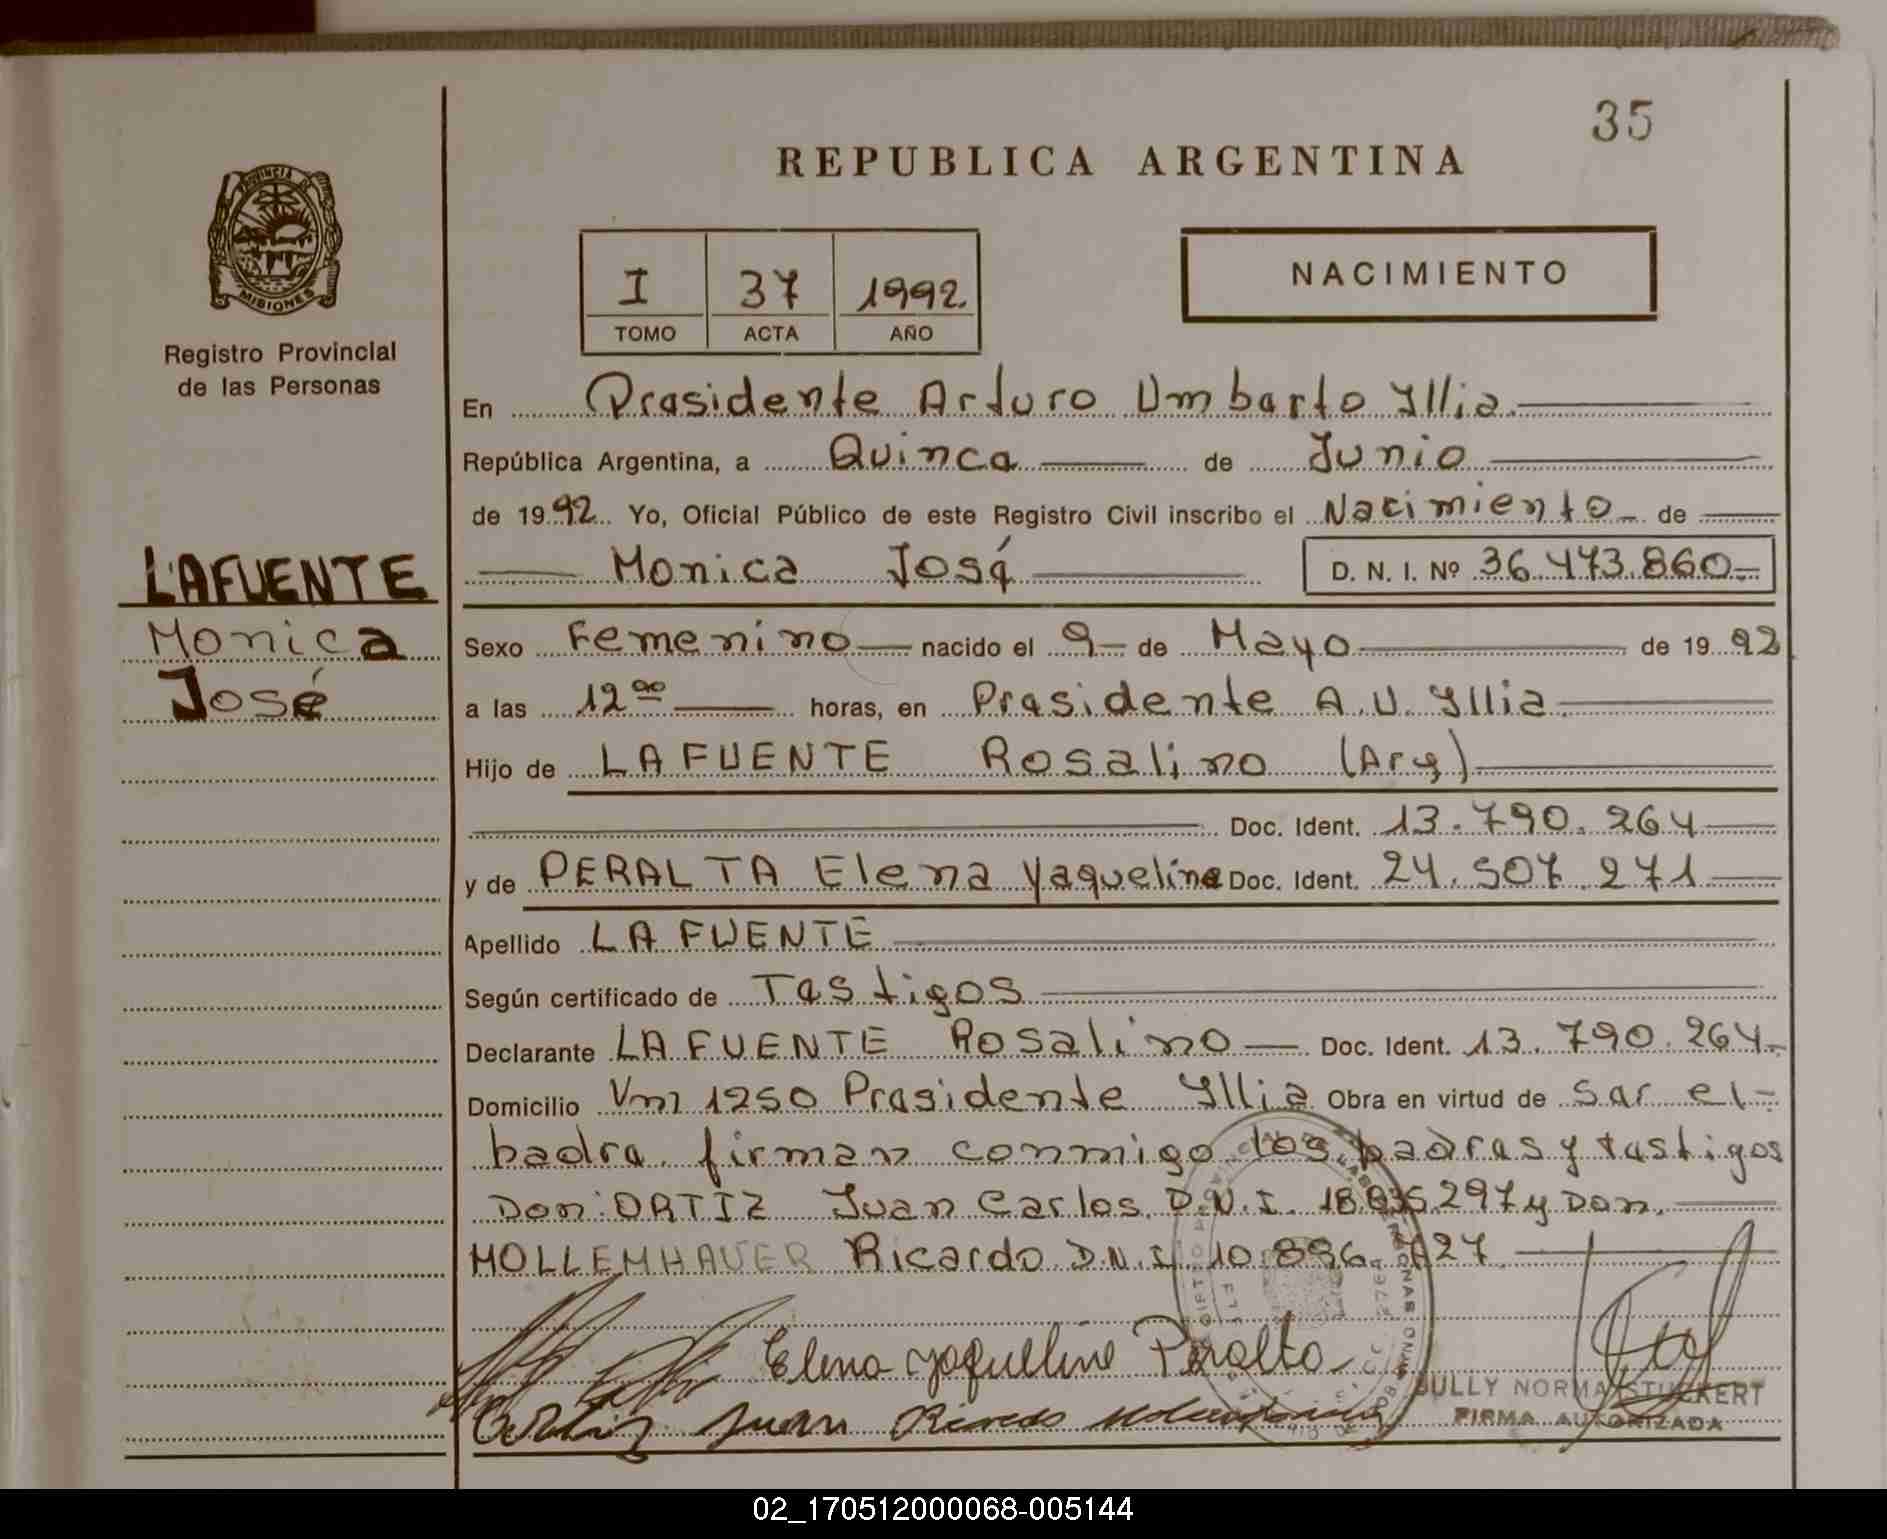 35
REPUBLICA ARGENTINA
PROVINCIA DE
MISIONES
Registro Provincial
de las Personas
I 37 1992.
TOMO ACTA AÑO
NACIMIENTO
En Presidente Arturo Umberto Yllia.
República Argentina, a Quince de Junio
de 1992. Yo, Oficial Público de este Registro Civil inscribo el Nacimiento de
Monica José D. N. I. Nº 36.473.860.-
LAFUENTE
Monica
José
Sexo Femenino nacido el 9 de Mayo de 1992
a las 12 00 horas, en Presidente A. U. Yllia.
Hijo de LAFUENTE Rosalino (Arg)
Doc. Ident. 13.790.264
y de PERALTA Elena Yaqueline Doc. Ident. 24.507.271
Apellido LAFUENTE
Según certificado de Testigos
Declarante LAFUENTE Rosalino Doc. Ident. 13.790.264.-
Domicilio Vm 1250 Presidente Yllia Obra en virtud de ser el-
padre. firman conmigo los padres y testigos
Don: ORTIZ Juan Carlos. D.N.I. 18.835.297 y Don.
MOLLEMHAUER Ricardo D.N.I. 10.896.727
Elena yaquelline Peralta
Ortiz Juan Ricardo
SULLY NORMA STUCKERT
FIRMA AUTORIZADA
02_170512000068-005144